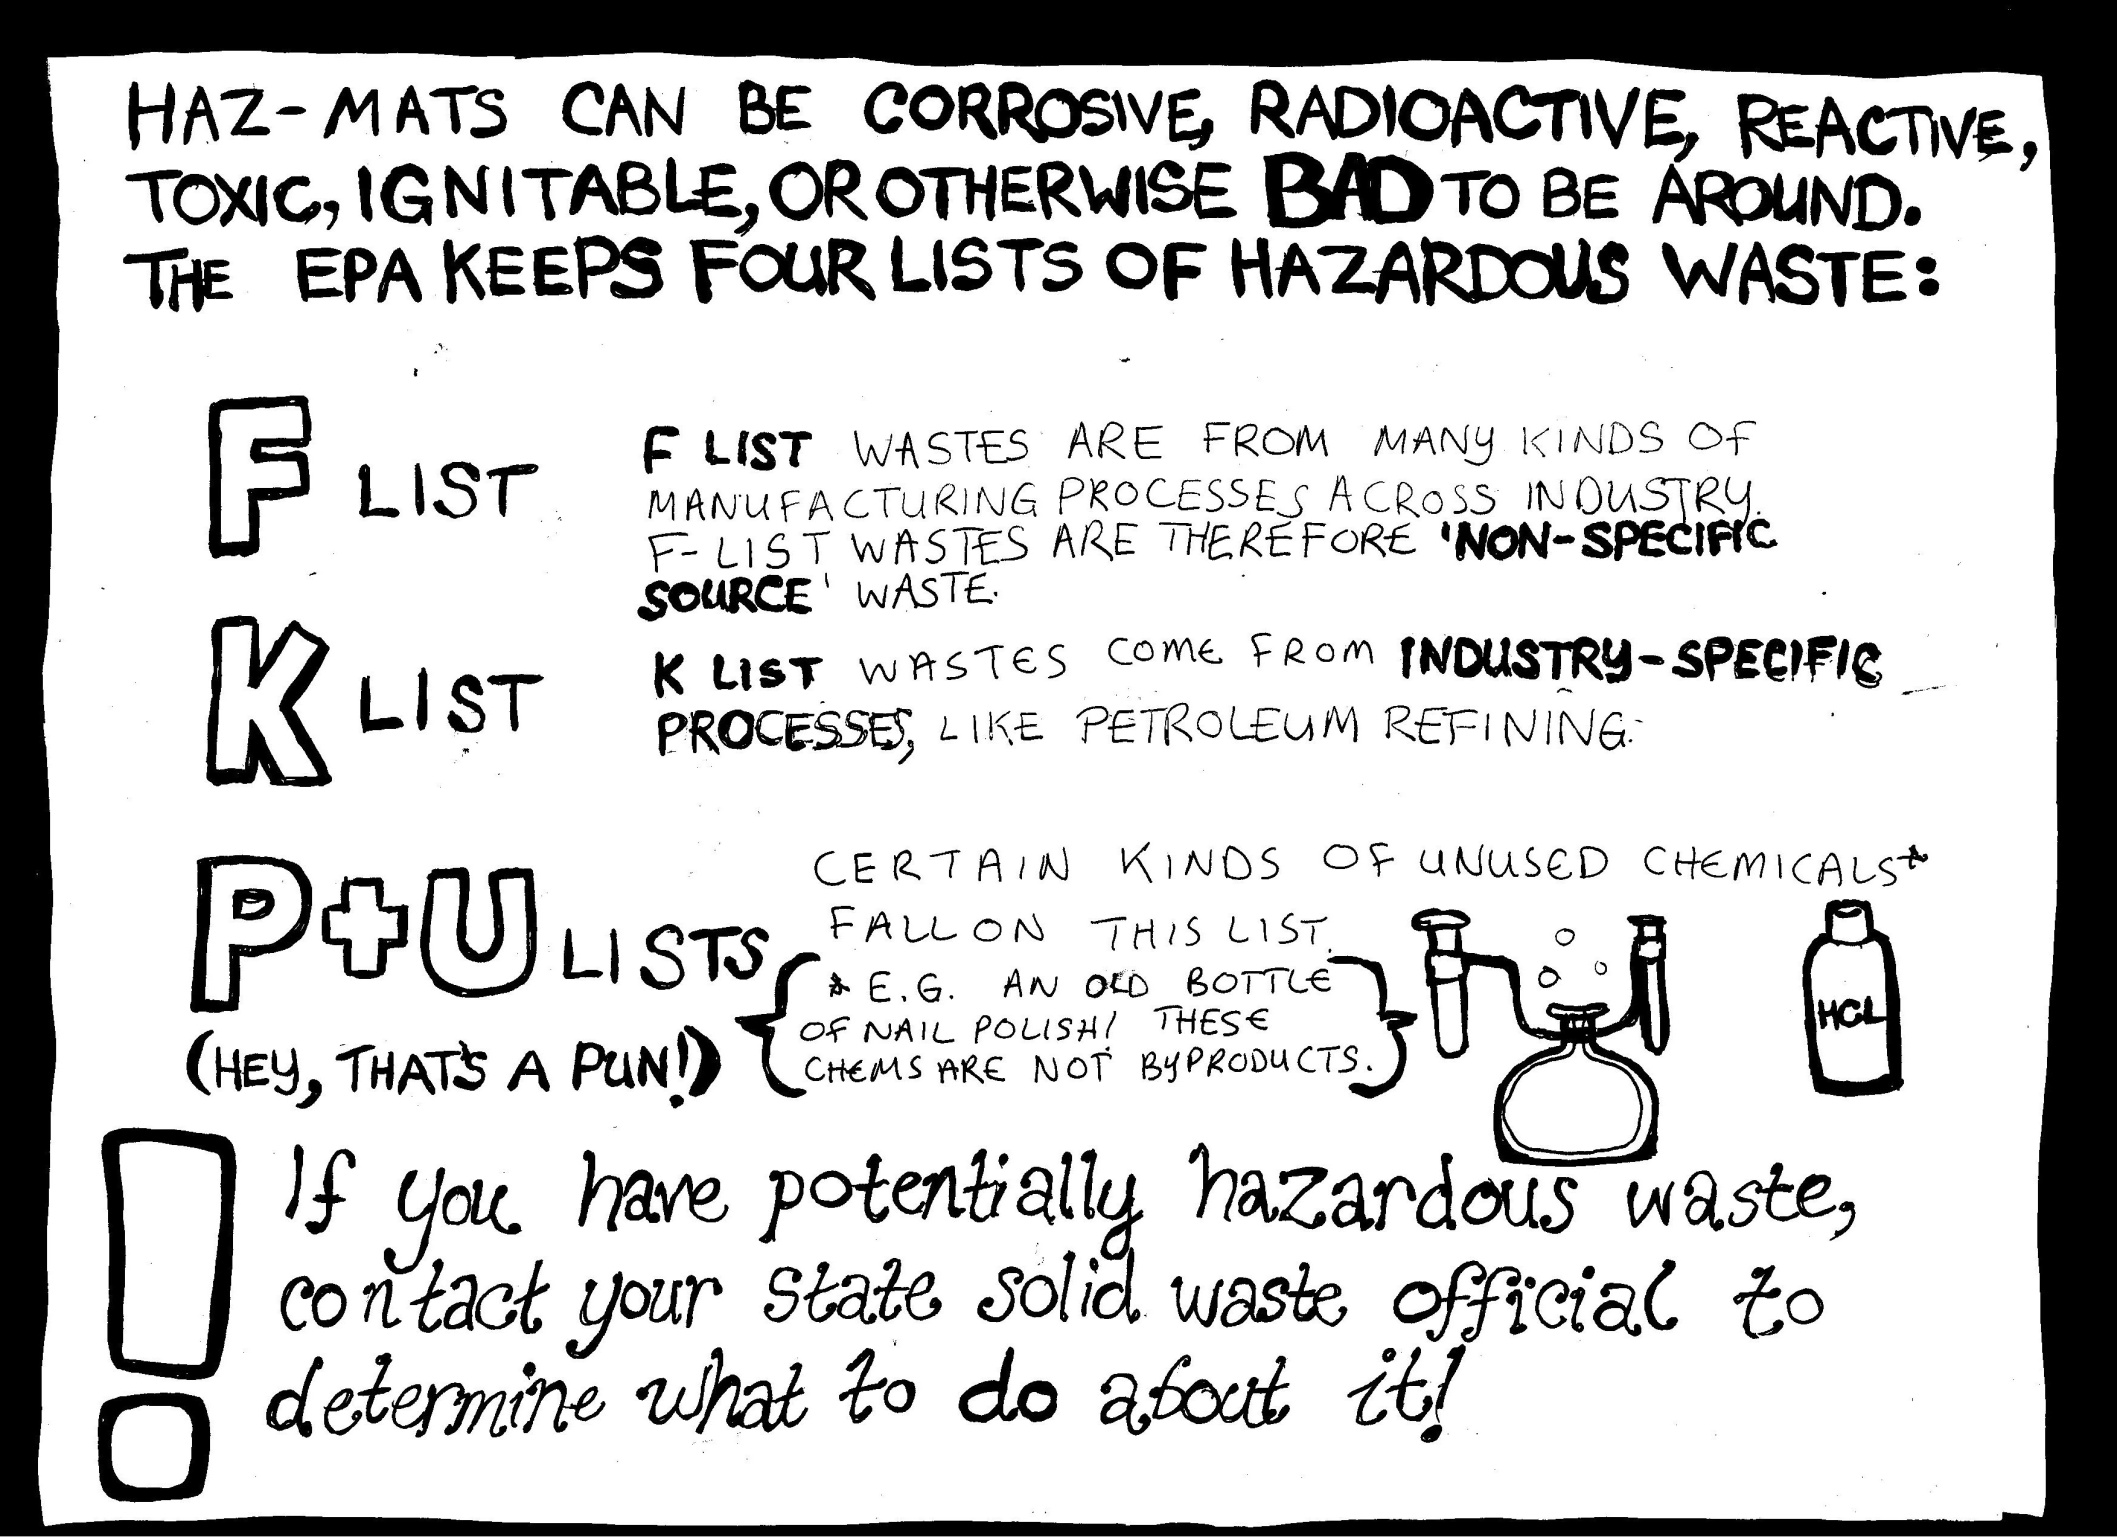 HAZ-MATS CAN BE CORROSIVE, RADIOACTIVE, REACTIVE,
TOXIC, IGNITABLE, OR OTHERWISE BAD TO BE AROUND.
THE EPA KEEPS FOUR LISTS OF HAZARDOUS WASTE:
F LIST
F LIST WASTES ARE FROM MANY KINDS OF
MANUFACTURING PROCESSES ACROSS INDUSTRY.
F-LIST WASTES ARE THEREFORE 'NON-SPECIFIC
SOURCE' WASTE.
K LIST
K LIST WASTES COME FROM INDUSTRY-SPECIFIC
PROCESSES, LIKE PETROLEUM REFINING.
P+U LISTS
(HEY, THAT'S A PUN!)
CERTAIN KINDS OF UNUSED CHEMICALS*
FALL ON THIS LIST.
* E.G. AN OLD BOTTLE
OF NAIL POLISH! THESE
CHEMS ARE NOT BYPRODUCTS.
HCL
! If you have potentially hazardous waste,
contact your state solid waste official to
determine what to do about it!